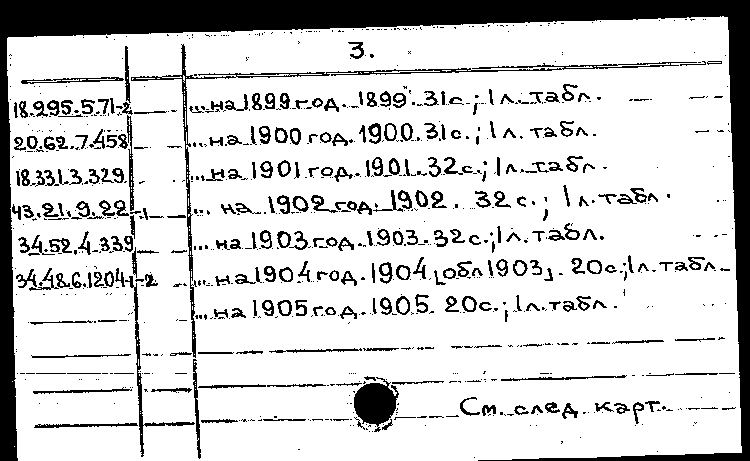 3.
18.995.5.71-2 ... на 1899 год. 1899. 31с.; 1 л. табл.
20.62.7.458 ... на 1900 год. 1900. 31с.; 1 л. табл.
18.331.3.329 ... на 1901 год. 1901. 32с.; 1 л. табл.
43.21.9.22-1 ... на 1902 год. 1902. 32 с.; 1 л. табл.
34.52.4.339 ... на 1903 год. 1903. 32с.; 1 л. табл.
34.48.6.1204-1-2 ... на 1904 год. 1904 [обл 1903]. 20с.; 1 л. табл.
... на 1905 год. 1905. 20с.; 1 л. табл.
См. след. карт.